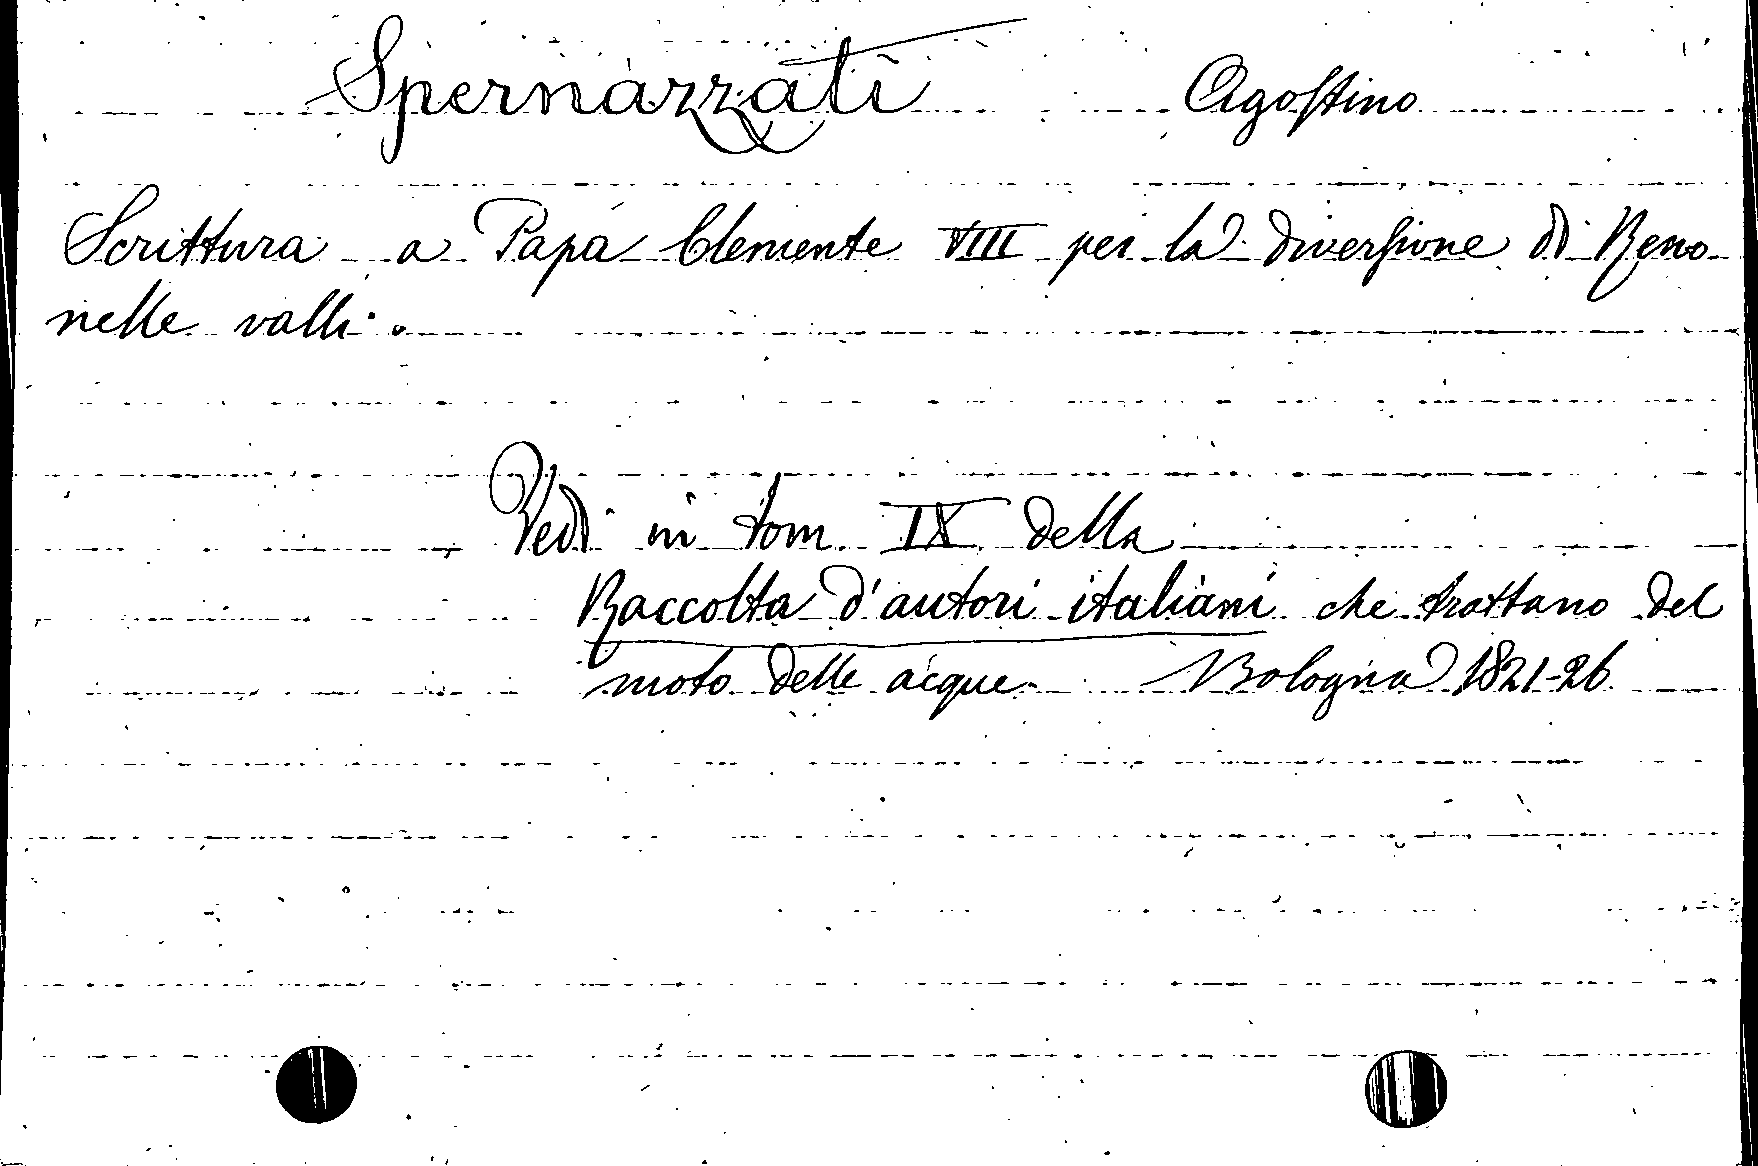 Spernazzati Agostino
Scrittura a Papa Clemente VIII per la diversione di Reno
nelle valli.
Vedi in tom. IX della
Raccolta d'autori italiani che trattano del
moto delle acque. Bologna 1821-26